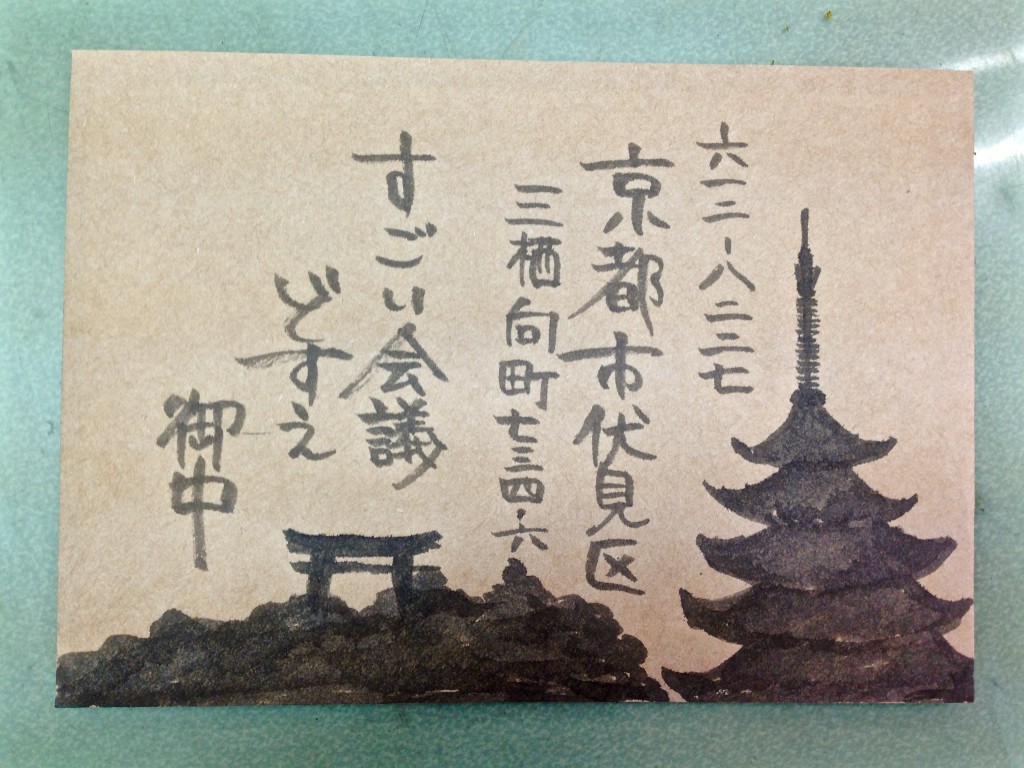 六一二-八二三七
京都市伏見区
三栖向町七三四-六
すごい会議
どすえ
御中